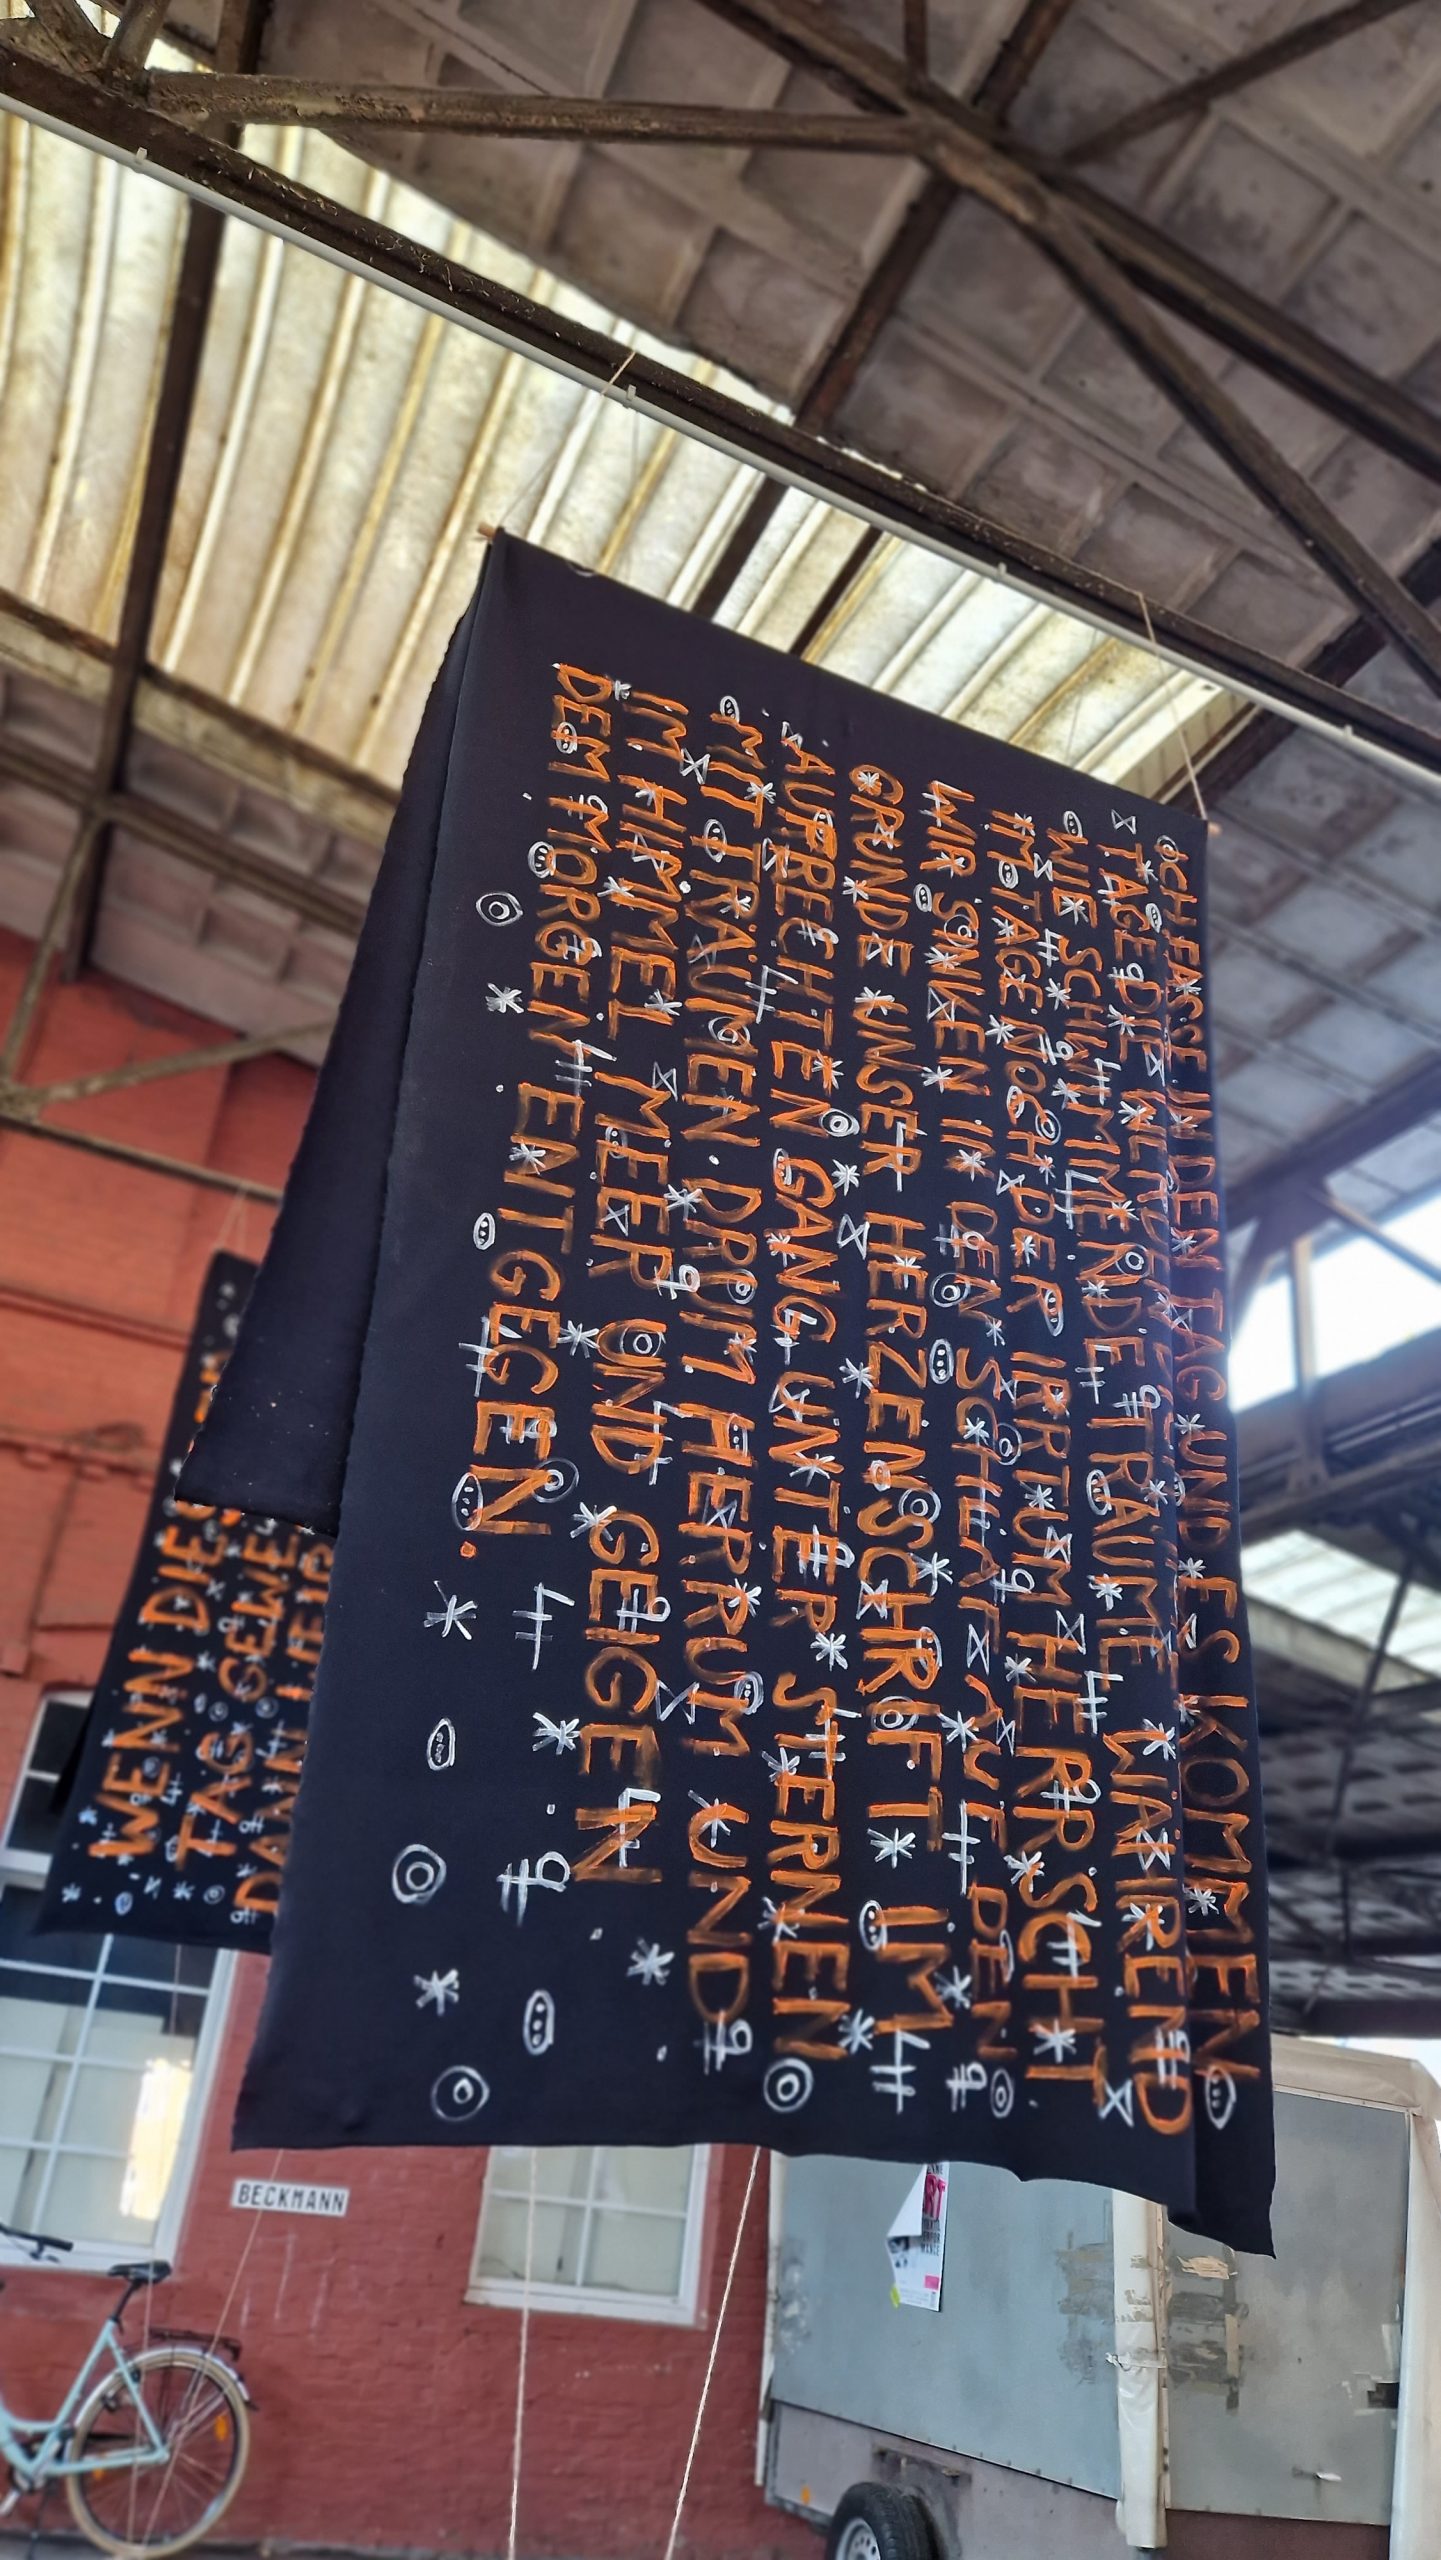 ICH FASSE IN DEN TAG UND ES KOMMEN
TAGE DIE WERDEN
WIE SCHWIMMENDE TRÄUME WÄHREND
IM TAGE NOCH DER IRRTUM HERRSCHT
WIR SINKEN IN DEN SCHLAF AUF DEN
GRUND UNSER HERZENSCHRIFT IM
AUFRECHTEN GANG UNTER STERNEN
MIT TRÄUMEN DRUM HERRUM UND
IM HIMMEL MEER UND GEIGEN
DEM MORGEN ENTGEGEN.
WENN DIE
TAG GEWE
DANN
BECKMANN